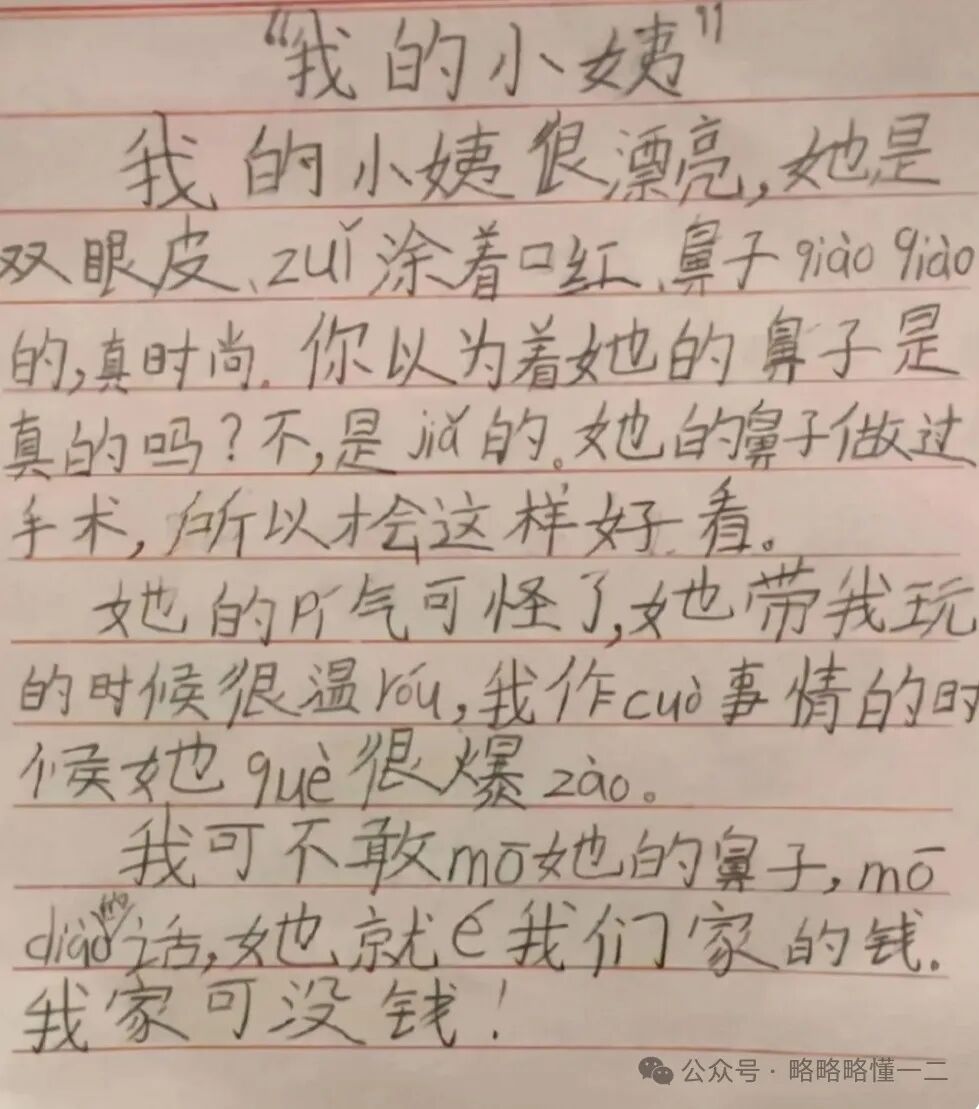 “我的小姨”
我的小姨很漂亮,她是
双眼皮、zuǐ涂着口红、鼻子qiào qiào
的,真时尚.你以为着她的鼻子是
真的吗?不,是jiǎ的。她的鼻子做过
手术,所以才会这样好看。
她的pí气可怪了,她带我玩
的时候很温róu,我作cuò事情的时
候她què很爆zào。
我可不敢mō她的鼻子,mō
diào的话,她就é我们家的钱.
我家可没钱!
公众号·略略略懂一二